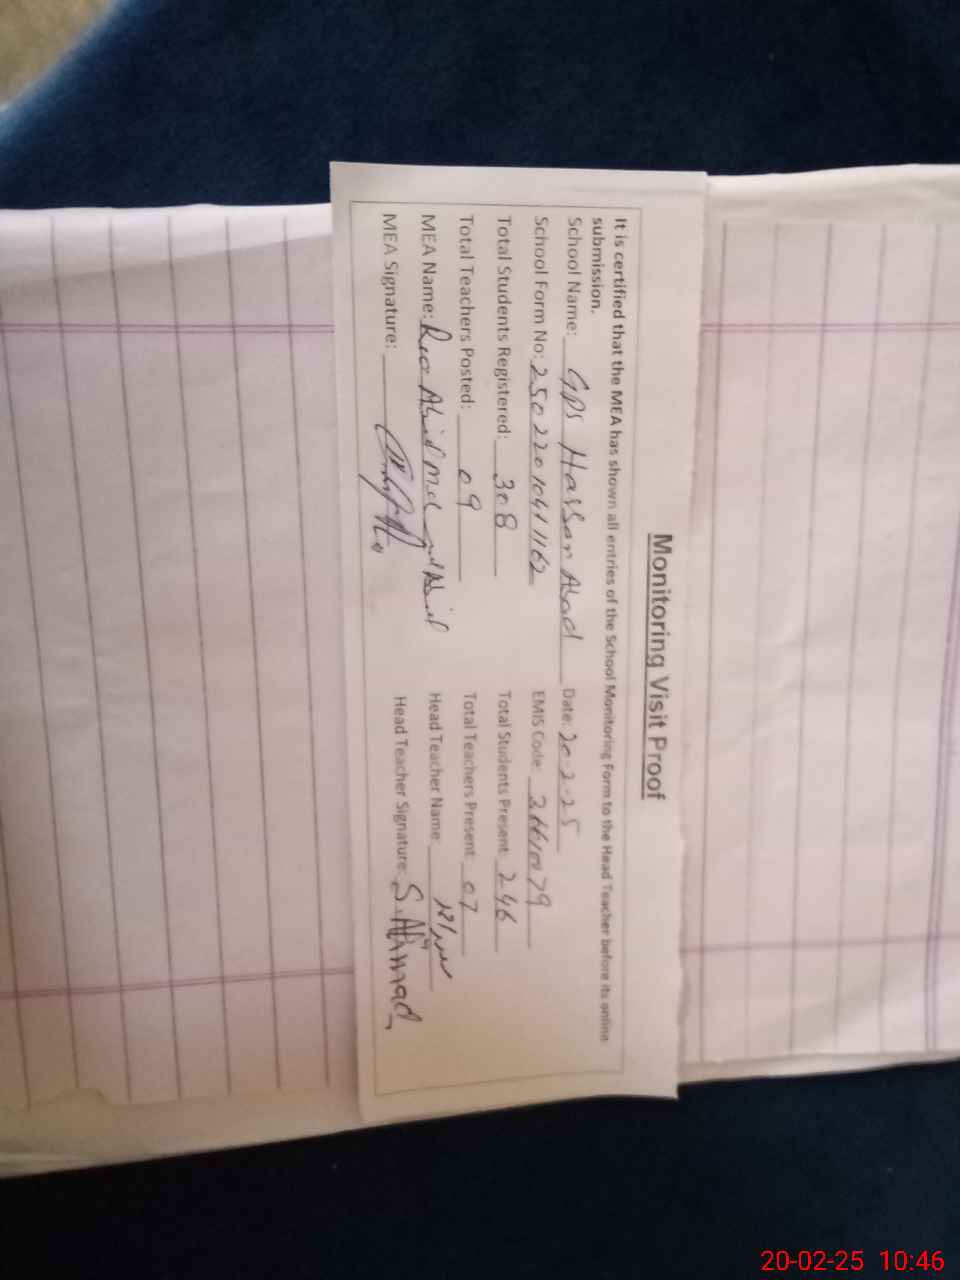 Monitoring Visit Proof
It is certified that the MEA has shown all entries of the School Monitoring Form to the Head Teacher before its online
submission.
School Name: GPS Hassan Abad Date: 20-2-25
School Form No: EMIS Code:
Total Students Registered: 308 Total Students Present: 246
Total Teachers Posted: 09 Total Teachers Present: 07
MEA Name: Rao Head Teacher Name:
MEA Signature: Head Teacher Signature: S. Ahmad
20-02-25 10:46